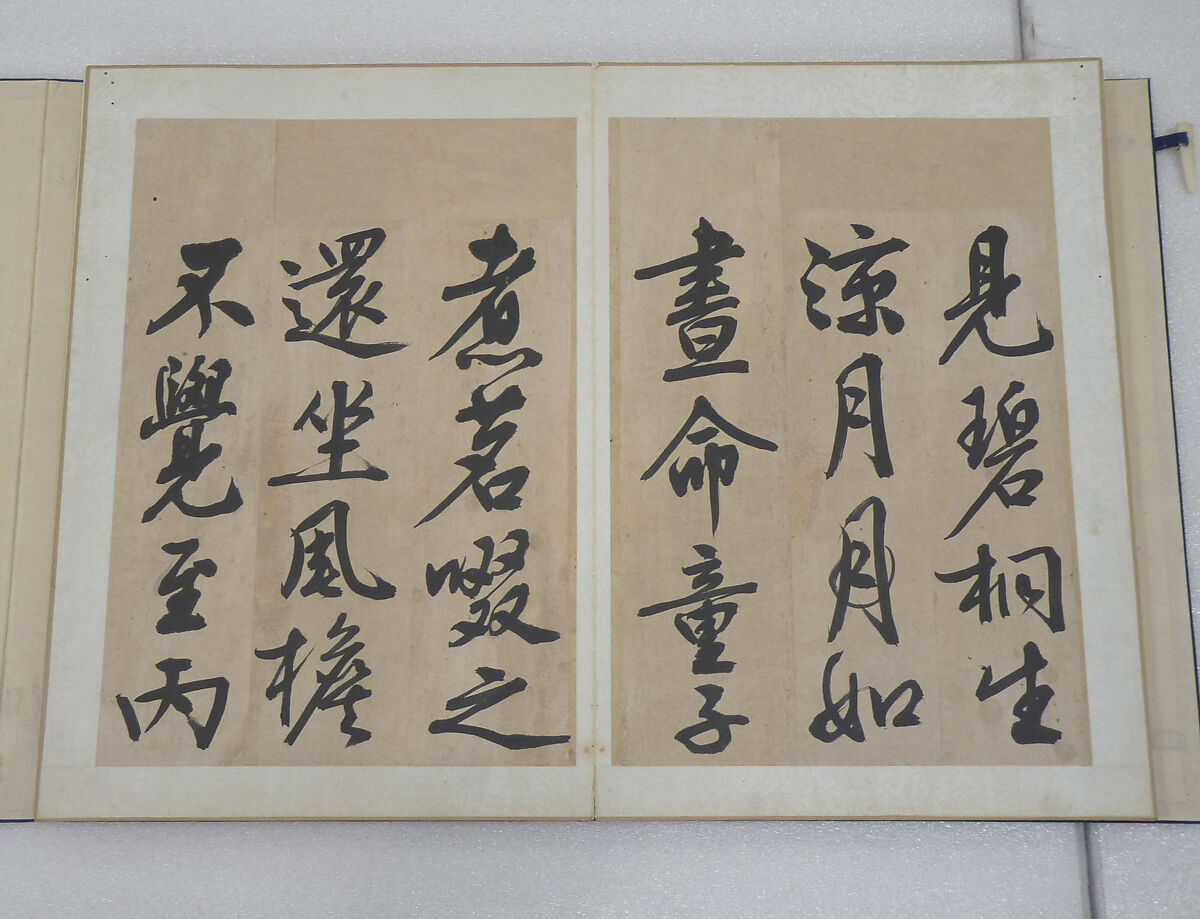 見碧桐生
涼月月如
晝命童子
煮茗啜之
還坐風檐
不覺至丙